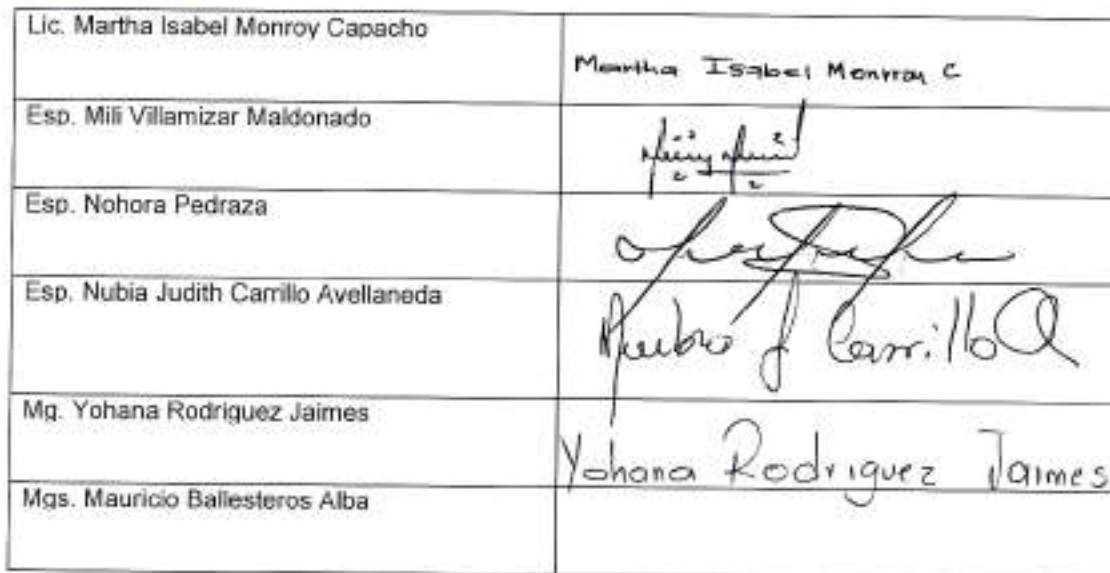 Lic. Martha Isabel Monroy Capacho
Martha Isabel Monroy C
Esp. Mili Villamizar Maldonado
Esp. Nohora Pedraza
Esp. Nubia Judith Carrillo Avellaneda
Nubia J Carrillo A
Mg. Yohana Rodriguez Jaimes
Yohana Rodriguez Jaimes
Mgs. Mauricio Ballesteros Alba